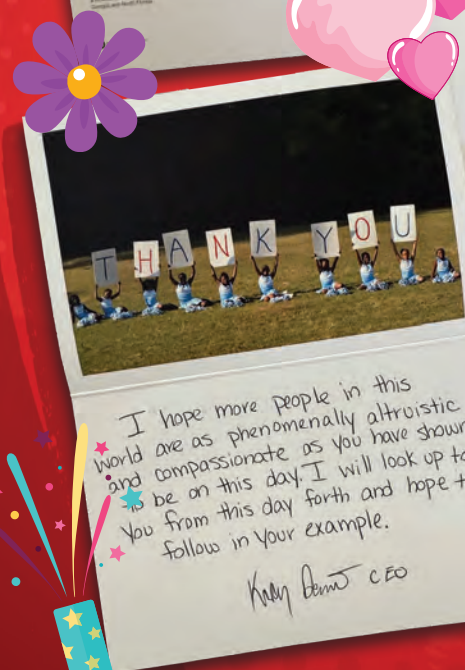 THANK YOU
I hope more people in this
world are as phenomenally altruistic
and compassionate as you have shown
to be on this day. I will look up to
you from this day forth and hope t
follow in your example.
CEO